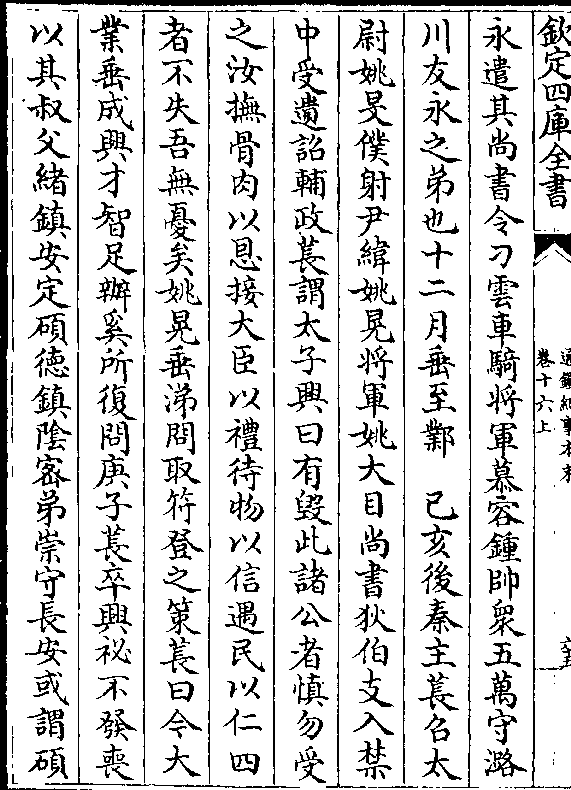 欽定四庫全書
通鑑紀事本末
卷十六上
永遣其尚書令刁雲車騎將軍慕容鍾帥衆五萬守潞
川友永之弟也十二月垂至鄴　己亥後秦主萇召太
尉姚旻僕射尹緯姚晃將軍姚大目尚書狄伯支入禁
中受遺詔輔政萇謂太子興曰有毀此諸公者慎勿受
之汝撫骨肉以恩接大臣以禮待物以信遇民以仁四
者不失吾無憂矣姚晃垂涕問取符登之策萇曰今大
業垂成興才智足辦奚所復問庚子萇卒興祕不發喪
以其叔父緒鎮安定碩德鎮陰密弟崇守長安或謂碩